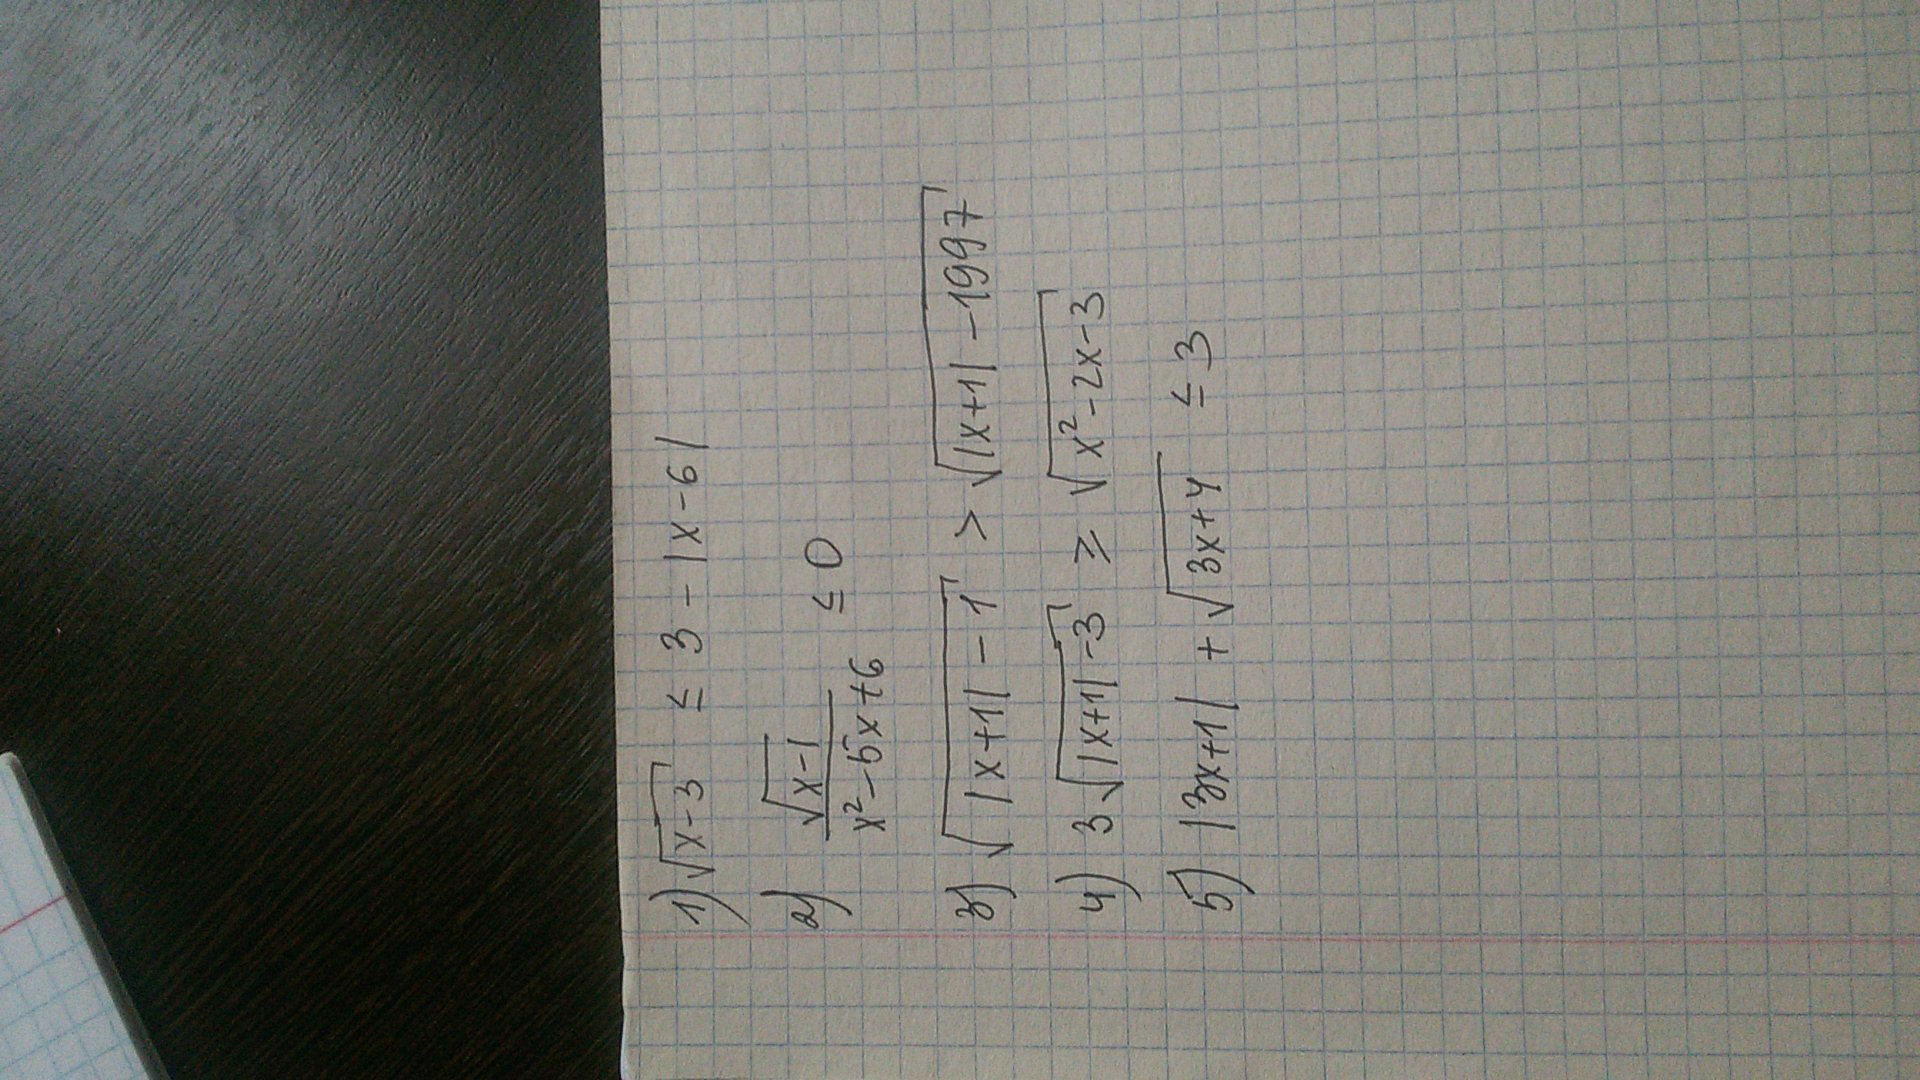 1) √(x-3) ≤ 3 - |x-6|
2) √(x-1) / (x²-5x+6) ≤ 0
3) √(|x+1| - 1) > √(|x+1| - 1997)
4) 3√(|x+1|-3) ≥ √(x²-2x-3)
5) |3x+1| + √(3x+4) ≤ 3